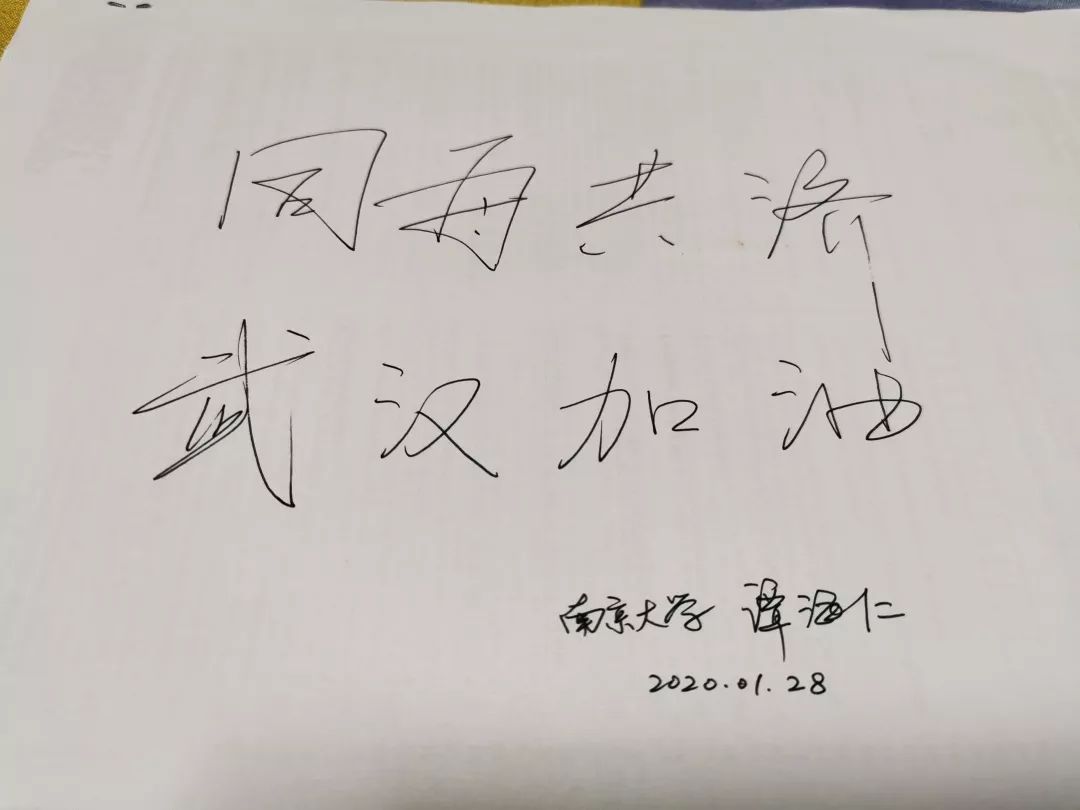 同舟共济
武汉加油
南京大学 谭海仁
2020.01.28